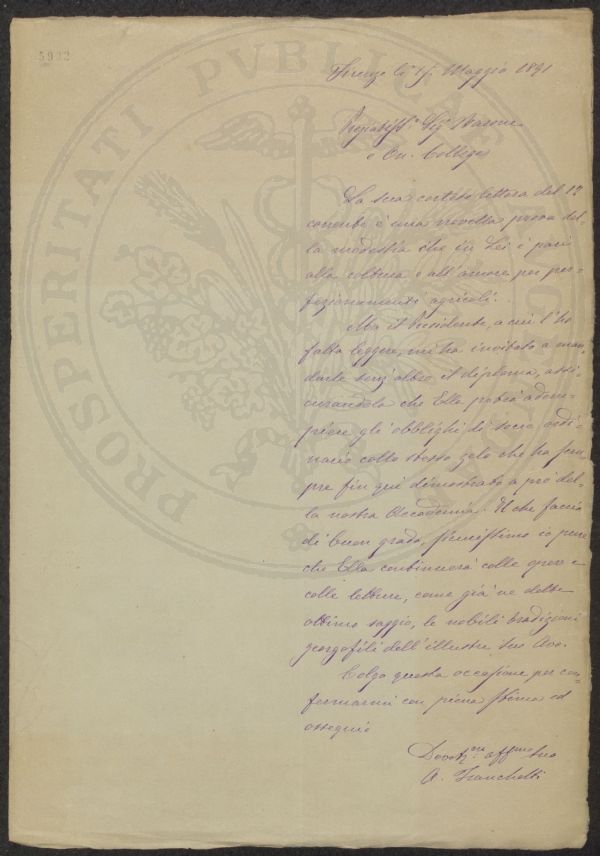 5992
Firenze li Maggio 1891
Sig. Barone
e On. Collega
La sua cortese lettera del 12
corrente è una novella prova del-
la modestia che in Lei è pari
alla coltura e all'amore pei per-
fezionamenti agricoli.
Ma il Presidente, a cui l'ho
fatta leggere, mi ha invitato a man-
darle senz'altro il diploma, assi-
curandola che Ella potrà adem-
piere gli obblighi di socio ordi-
nario collo stesso zelo che ha sem-
pre fin qui dimostrato a pro del-
la nostra Accademia. Il che faccio
di buon grado, sicurissimo io pure
che Ella continuerà colle opere e
colle letture, come già ne dette
ottimo saggio, le nobili tradizioni
georgofile dell'illustre suo Avo.
Colgo questa occasione per con-
fermarmi con piena stima ed
ossequio
affmo suo
A. Franchetti
PROSPERITATI PUBLICAE AUGENDAE